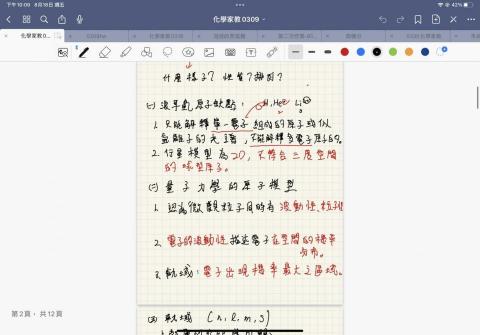 下午10:09 8月18日週五
42%
化學家教0309
化學家教0309
第2頁，共12頁
什麼樣子？性質？排列？
(一) 波耳氫原子缺點：
1. 只能解釋單一電子組成的原子或似
氫離子的光譜，不能解釋多電子原子的。
2. 行星模型為2D，不符合三度空間
的球型原子。
(二) 量子力學的原子模型
1. 認為微觀粒子同時有波動性、粒子性
2. 電子的波動性描述電子在空間的機率
分布。
3. 軌域：電子出現機率最大之區域。
軌域 (n, l, m, s)